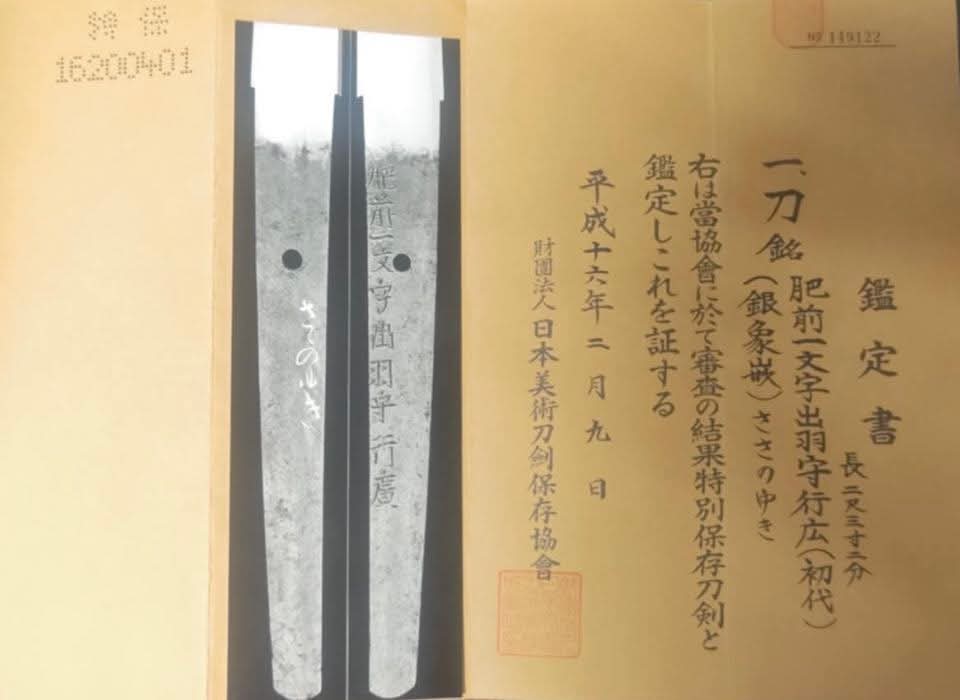 鑑定書
一、刀 銘 肥前一文字出羽守行広(初代)
長二尺三寸二分
(銀象嵌)ささのゆき
右は當協會に於て審査の結果特別保存刀剣と
鑑定しこれを証する
平成十六年二月九日
財團法人日本美術刀劍保存協會
№ 149122
肥前一文字出羽守行廣
さゝのゆき
特保
16200401